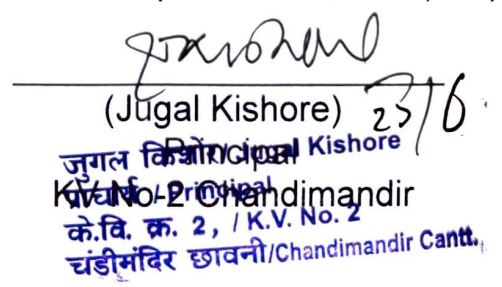 (Jugal Kishore) 23/6
Principal
KV No-2 Chandimandir
जुगल किशोर/Jugal Kishore
प्राचार्य / Principal
के.वि. क्र. 2, / K.V. No. 2
चंडीमंदिर छावनी/Chandimandir Cantt.